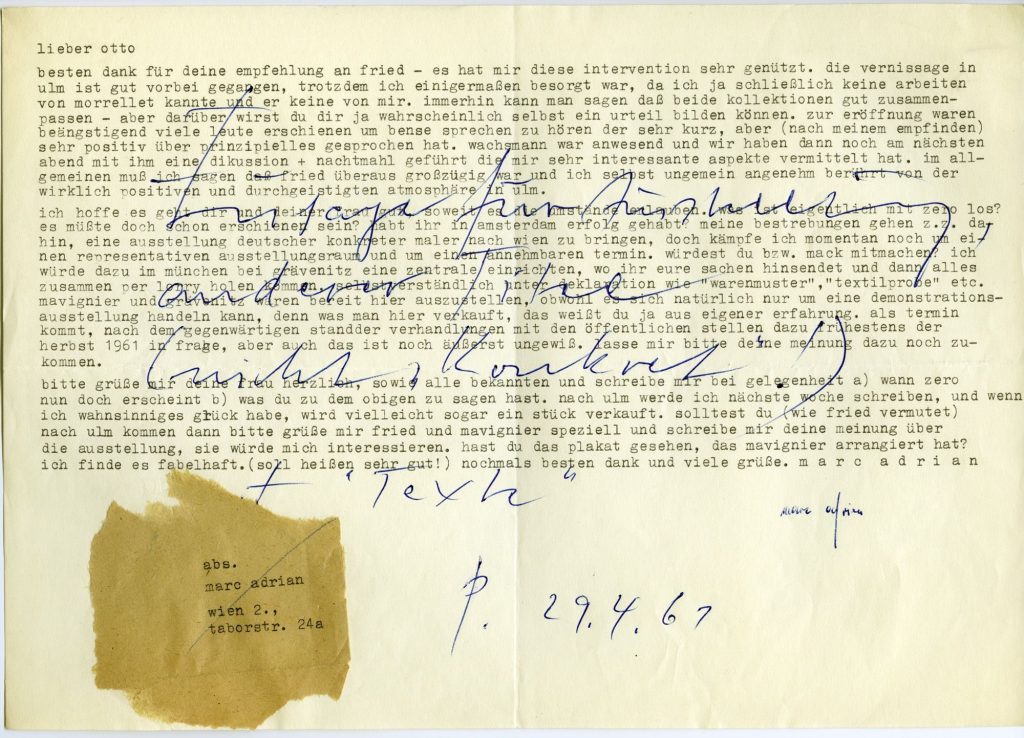 lieber otto
besten dank für deine empfehlung an fried - es hat mir diese intervention sehr genützt. die vernissage in
ulm ist gut vorbei gegangen, trotzdem ich einigermaßen besorgt war, da ich ja schließlich keine arbeiten
von morrellet kannte und er keine von mir. immerhin kann man sagen daß beide kollektionen gut zusammen-
passen - aber darüber wirst du dir ja wahrscheinlich selbst ein urteil bilden können. zur eröffnung waren
beängstigend viele leute erschienen um bense sprechen zu hören der sehr kurz, aber (nach meinem empfinden)
sehr positiv über prinzipielles gesprochen hat. wachsmann war anwesend und wir haben dann noch am nächsten
abend mit ihm eine dikussion + nachtmahl geführt die mir sehr interessante aspekte vermittelt hat. im all-
gemeinen muß ich sagen daß fried überaus großzügig war und ich selbst ungemein angenehm berührt von der
wirklich positiven und durchgeistigten atmosphäre in ulm.
ich hoffe es geht dir und deiner frau gut, soweit es die umstände erlauben. was ist eigentlich mit zero los?
es müßte doch schon erschienen sein? habt ihr in amsterdam erfolg gehabt? meine bestrebungen gehen z.z. da-
hin, eine ausstellung deutscher konkreter maler nach wien zu bringen, doch kämpfe ich momentan noch um ei-
nen representativen ausstellungsraum und um einen annehmbaren termin. würdest du bzw. mack mitmachen? ich
würde dazu im münchen bei grävenitz eine zentrale einrichten, wo ihr eure sachen hinsendet und dann alles
zusammen per lorry holen kommen, selbstverständlich unter deklaration wie "warenmuster","textilprobe" etc.
mavignier und grävenitz wären bereit hier auszustellen, obwohl es sich natürlich nur um eine demonstrations-
ausstellung handeln kann, denn was man hier verkauft, das weißt du ja aus eigener erfahrung. als termin
kommt, nach dem gegenwärtigen standder verhandlungen mit den öffentlichen stellen dazu frühestens der
herbst 1961 in frage, aber auch das ist noch äußerst ungewiß. lasse mir bitte deine meinung dazu noch zu-
kommen.
bitte grüße mir deine frau herzlich, sowie alle bekannten und schreibe mir bei gelegenheit a) wann zero
nun doch erscheint b) was du zu dem obigen zu sagen hast. nach ulm werde ich nächste woche schreiben, und wenn
ich wahnsinniges glück habe, wird vielleicht sogar ein stück verkauft. solltest du (wie fried vermutet)
nach ulm kommen dann bitte grüße mir fried und mavignier speziell und schreibe mir deine meinung über
die ausstellung, sie würde mich interessieren. hast du das plakat gesehen, das mavignier arrangiert hat?
ich finde es fabelhaft.(soll heißen sehr gut!) nochmals besten dank und viele grüße. m a r c  a d r i a n
für Ausstellung
anderer
(nicht "Konkret"!)
+ "Texte"
marc adrian
abs.
marc adrian
wien 2.,
taborstr. 24a
P. 29.4.61